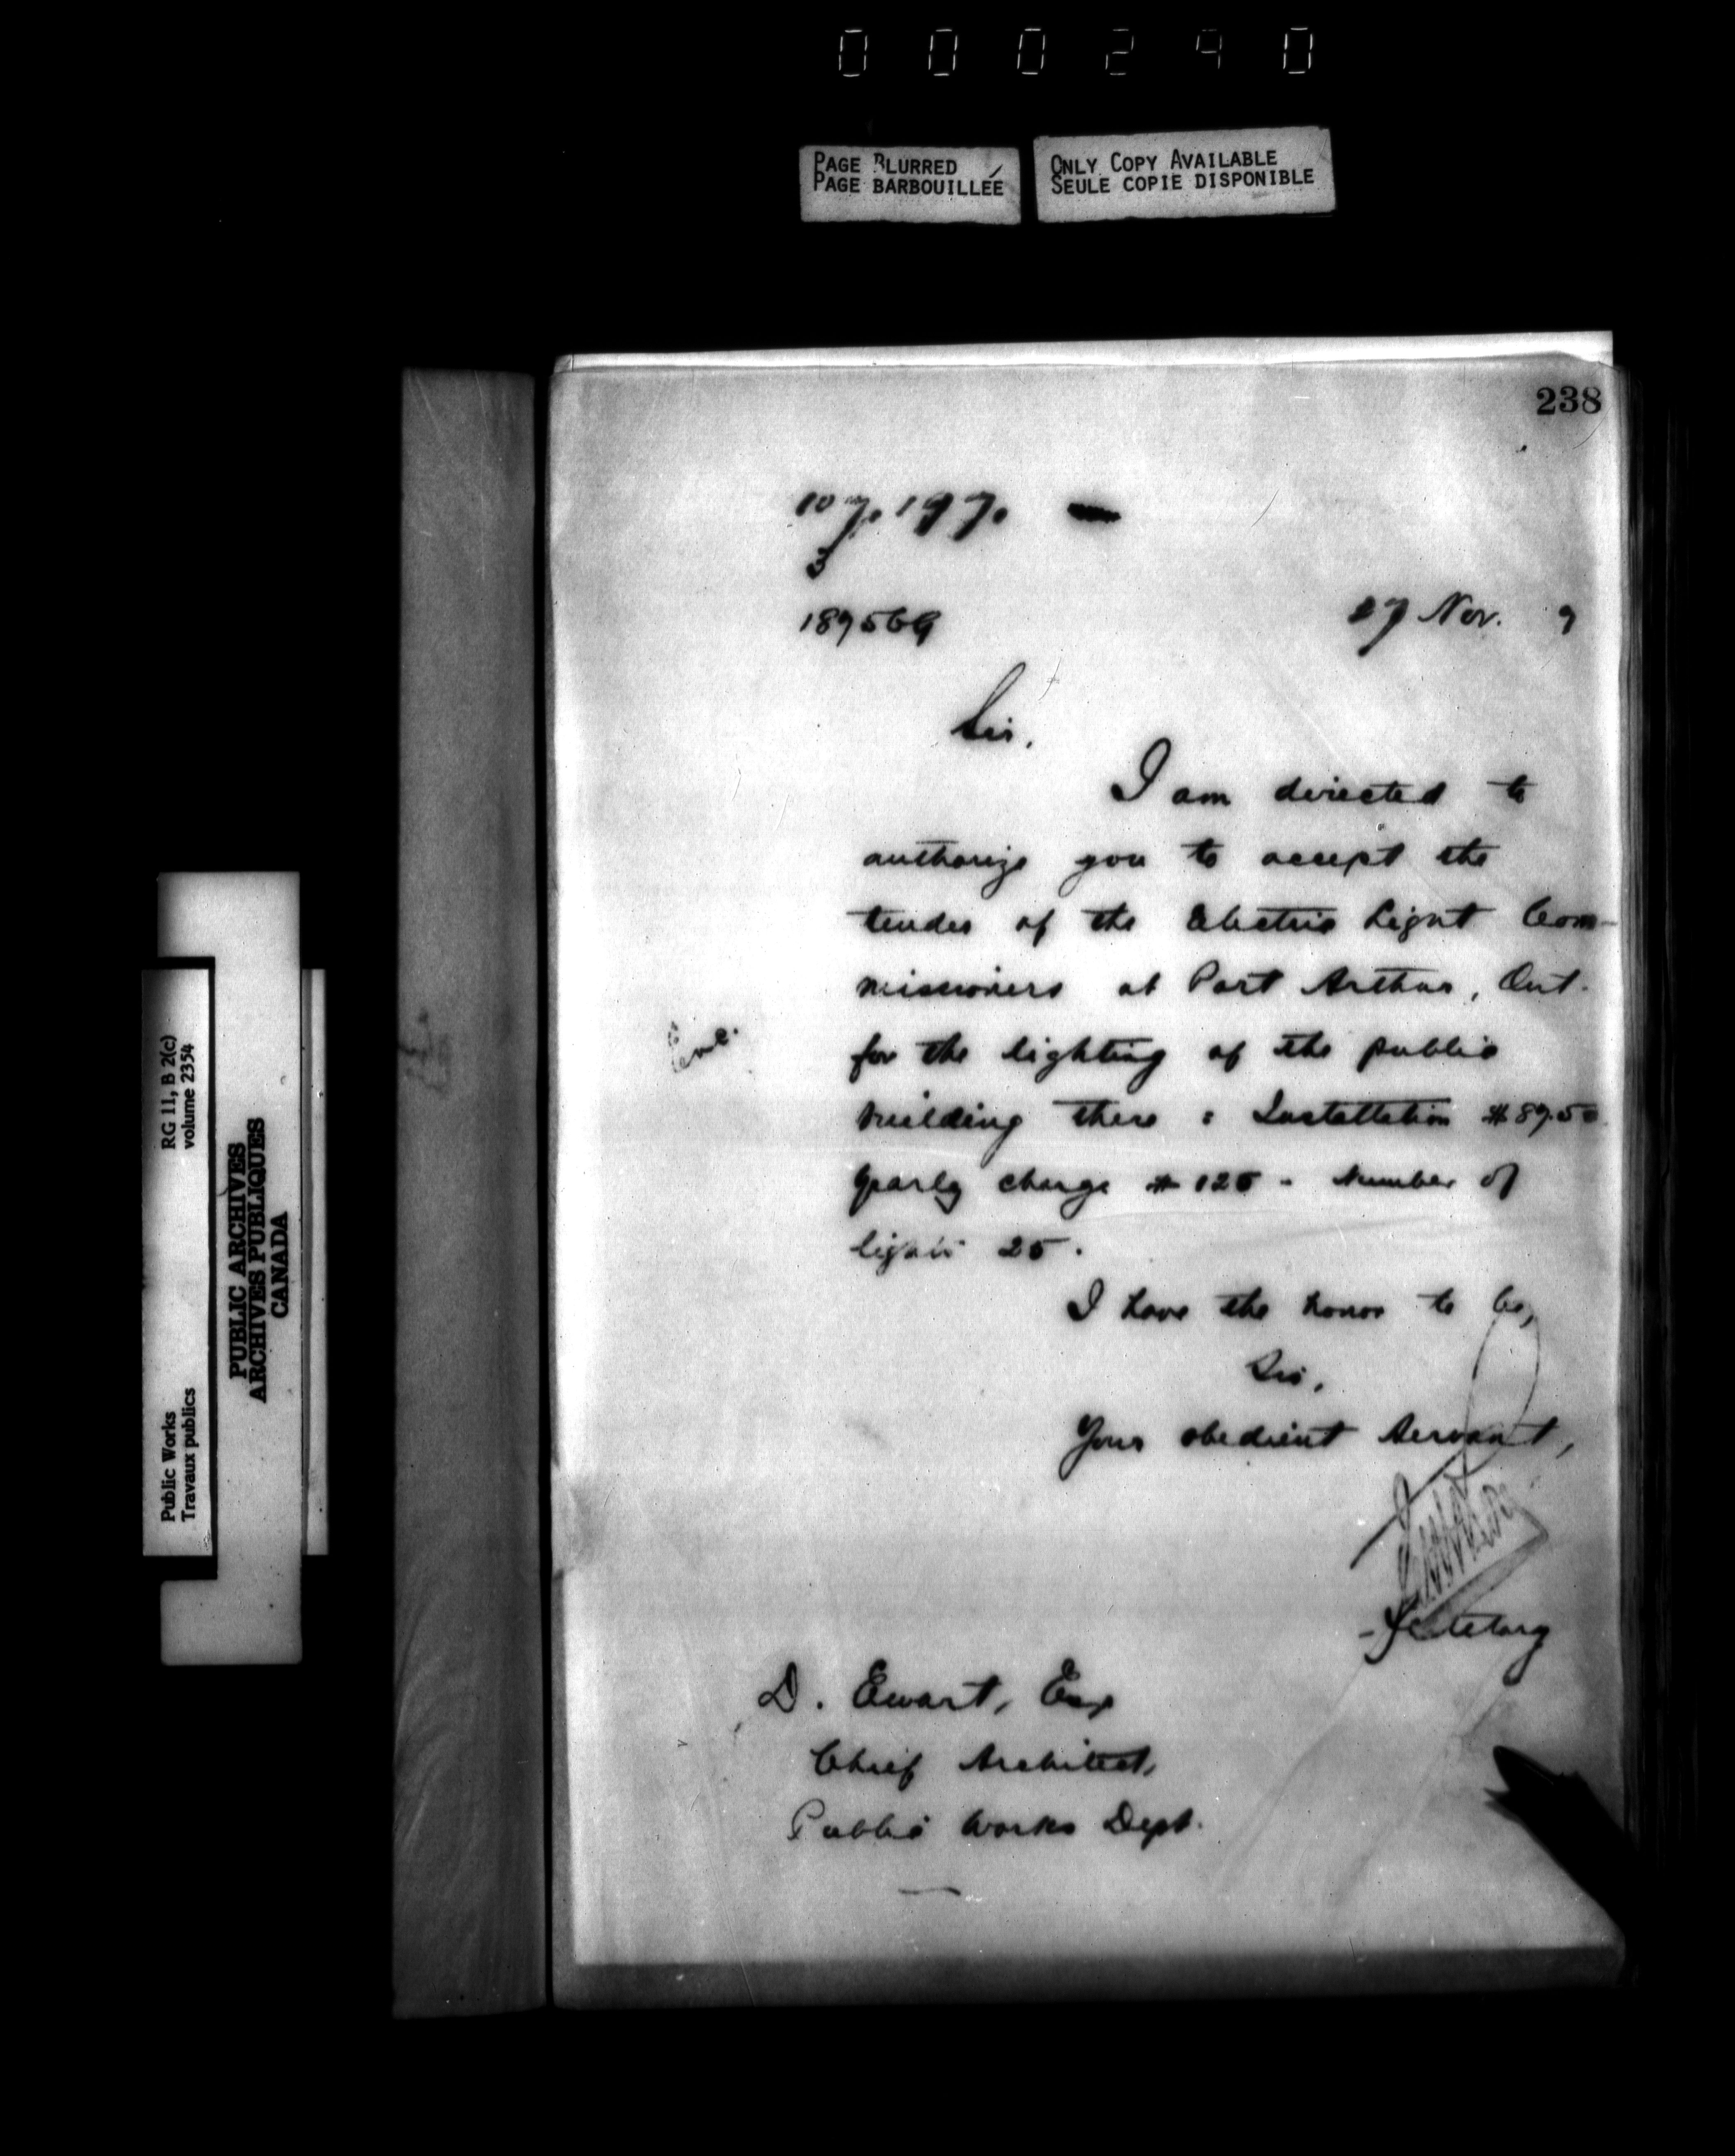 000240
PAGE BLURRED
PAGE BARBOUILLÉE
ONLY COPY AVAILABLE
SEULE COPIE DISPONIBLE
238
3
189569
27 Nov. 9
Sir,
I am directed to
authorize you to accept the
tender of the Electric Light Com-
missioners at Port Arthur, Ont.
for the lighting of the public
Enc.
building there : Installation $89.50
yearly charge $125 - Number of
lights 25.
I have the honor to be,
Sir,
Your obedient Servant,
Secretary
D. Ewart, Esq
Chief Architect,
Public Works Dept.
RG 11, B 2(c)
volume 2354
PUBLIC ARCHIVES
ARCHIVES PUBLIQUES
CANADA
Public Works
Travaux publics